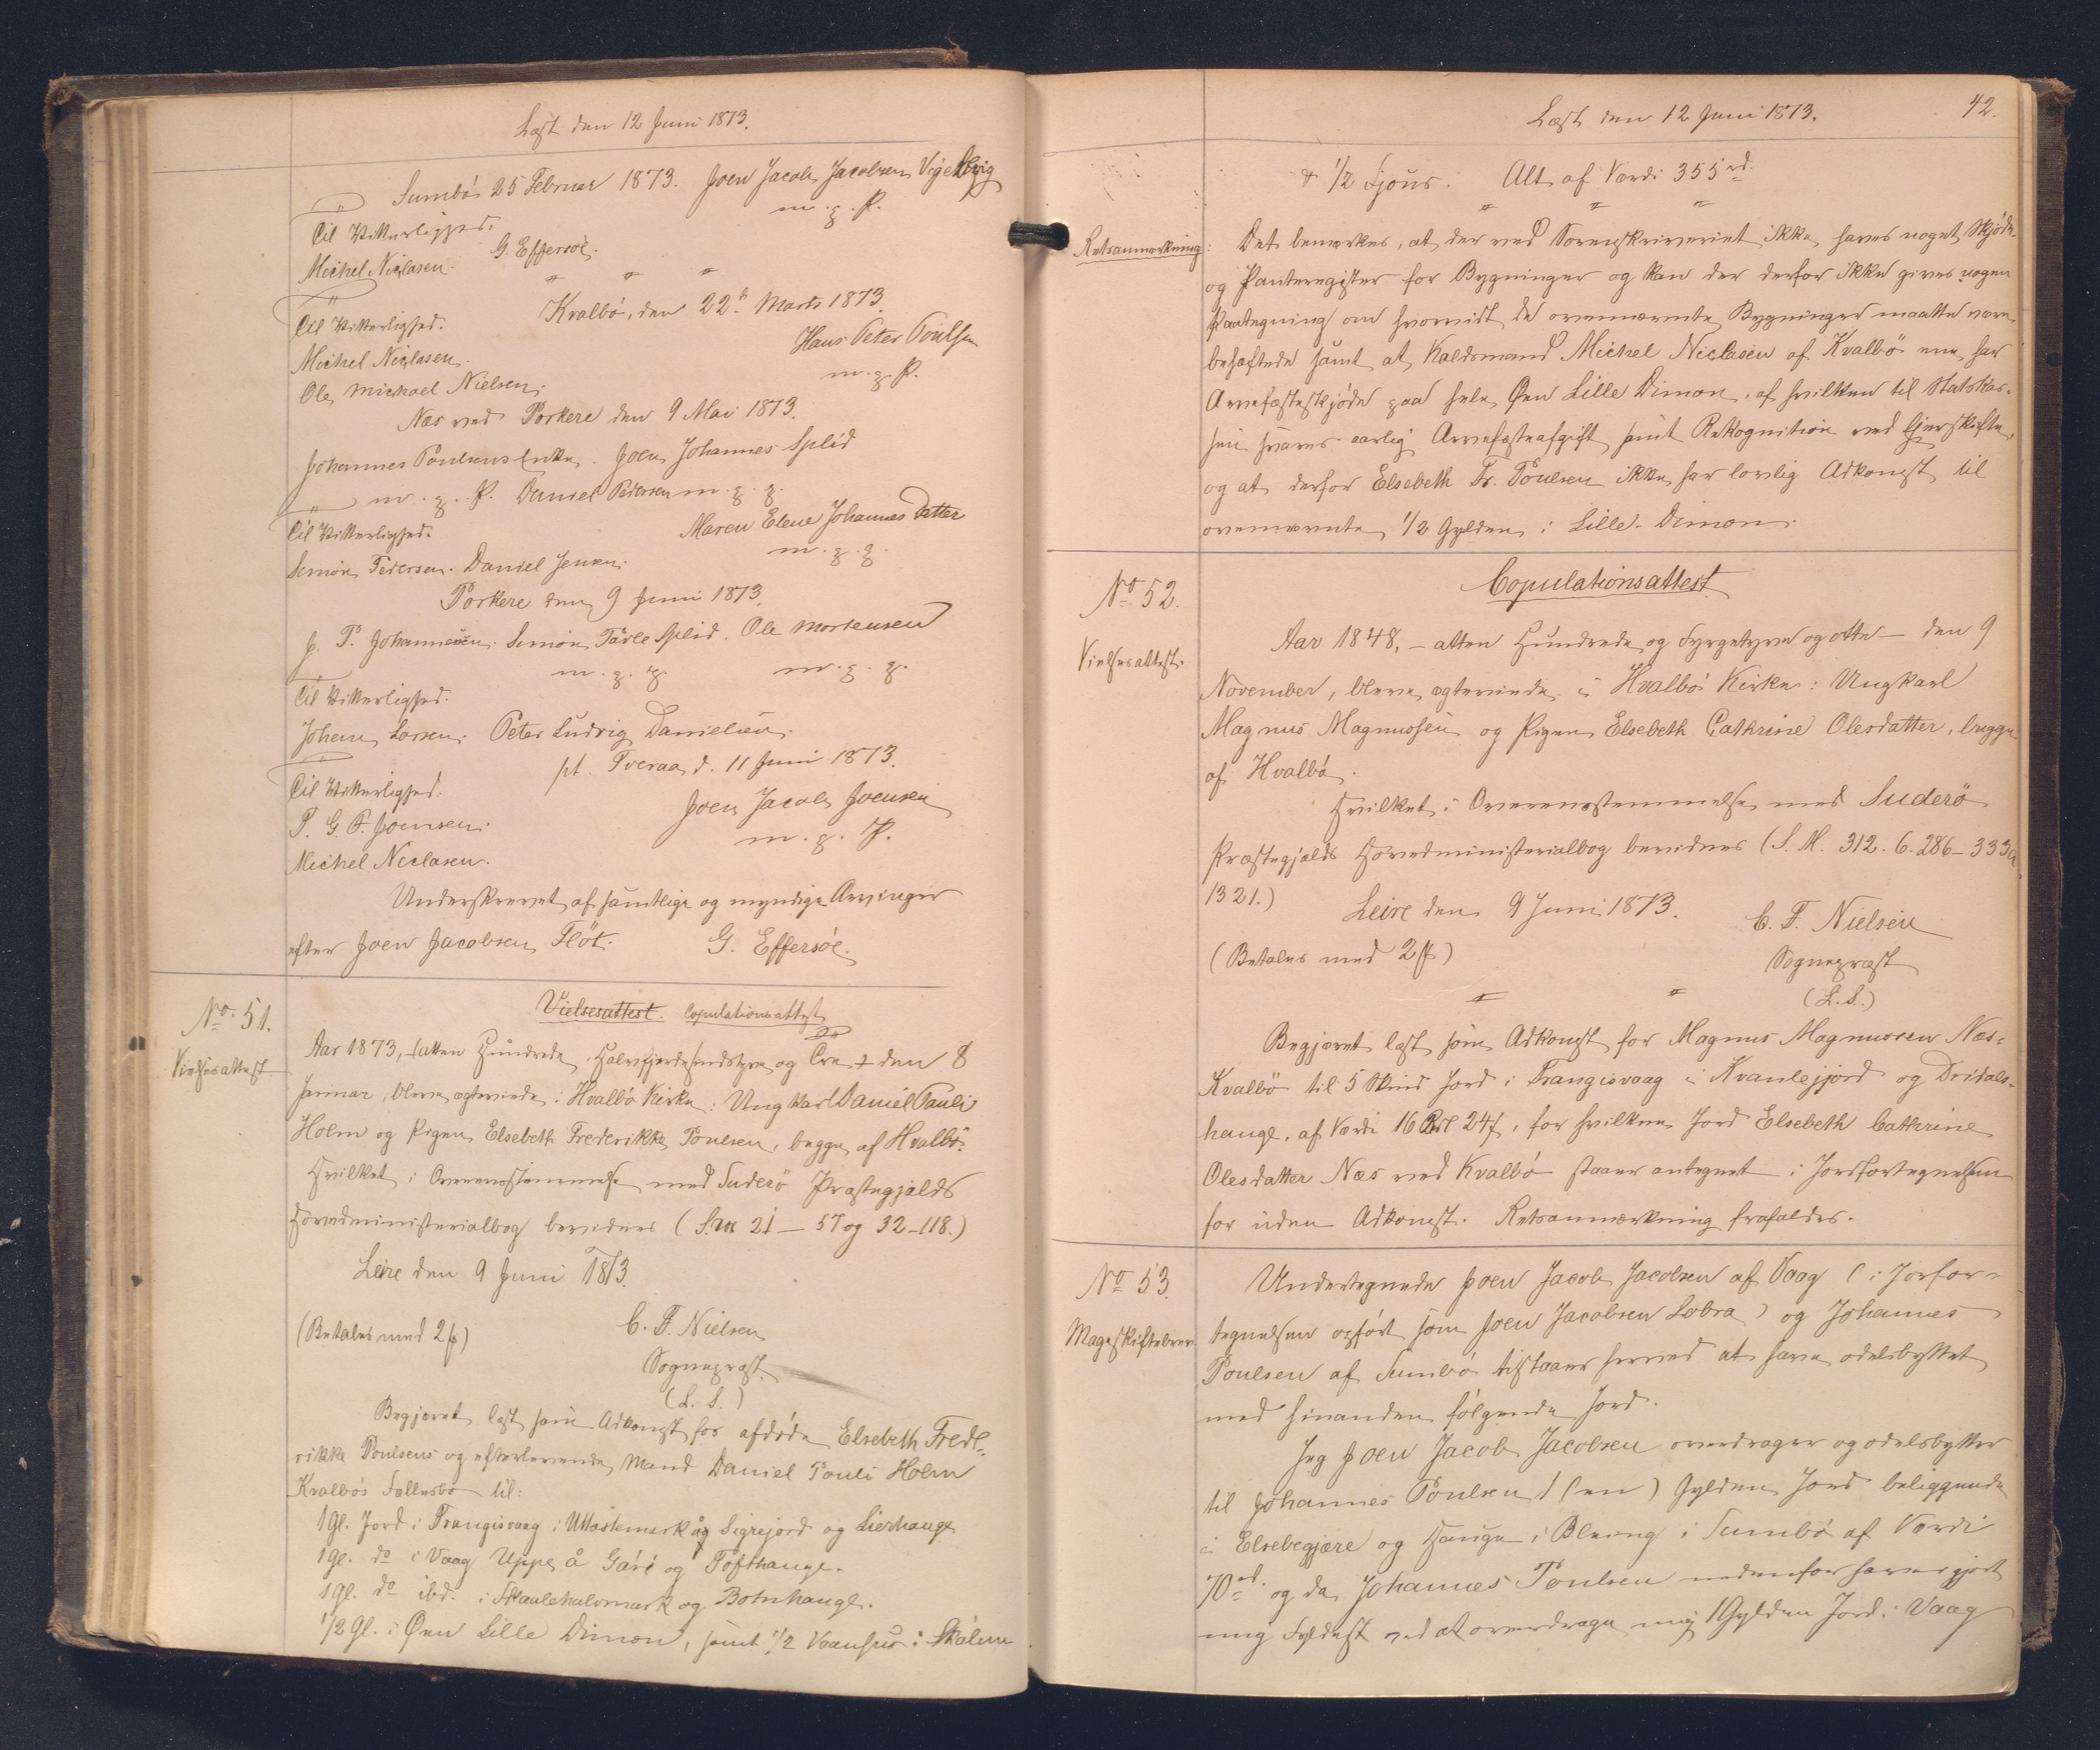 Læst den 12 Juni 1873.
Sumbö 25 Februar 1873. Joen Jacob Jacobsen Vigelbyig
m. p. P.
Til Vitterlighed.
Michel Niclasen. G. Effersöe.
" " "
Kvalbö, den 22de Marts 1873.
Til Vitterlighed.
Hans Peter Poulsen
Michel Niclasen.
m. p. P.
Ole Michael Nielsen.
Næs ved Porkere den 9 Mai 1873.
Johannes Poulsens Enke. Joen Johannes Splid
m. p. P. Daniel Pedersen m. p. p.
Til Vitterlighed.
Maren Elene Johannes Datter
m. p. p.
Simon Pedersen. Daniel Jensen.
Porkere den 9 Juni 1873.
J. P. Johannesen. Simon Påvle Splid. Ole Mortensen
m. p. p. m. p. p.
Til Vitterlighed.
Johan Larsen. Peter Ludvig Danielsen.
pt. Tveraa d. 11 Juni 1873.
Til Vitterlighed.
Joen Jacob Joensen
P. G. P. Joensen.
m. p. P.
Michel Niclasen.
Underskrevet af samtlige og myndige Arvinger
efter Joen Jacobsen Flöt. G. Effersöe.
No. 51.
Vielsesattest.
Vielsesattest. Copulationsattest
Aar 1873, atten Hundrede, Halvfjerdesindstyve og Tre + den 8
Januar, bleve ægteviede i Hvalbö Kirke: Ungkarl Daniel Pauli
Holm og Pigen Elsebeth Frederikke Poulsen, begge af Hvalbö.
Hvilket i Overensstemmelse med Suderö Præstegjælds
Hovedministerialbog bevidnes (S. M. 21 – 57 og 32 – 118.)
Leire den 9 Juni 1873.
(Betales med 2 ß) C. F. Nielsen
Sognepræst.
(L. S.)
Begjæret læst som Adkomst for afdöde Elsebeth Frede-
rikke Poulsens og efterlevende Mand Daniel Pouli Holm
Kvalbös Fællesbo til:
1 Gl. Jord i Trangisvaag i Uttastemark og Sigrejord og Lierhauge
1 Gl. do i Vaag Uppe å Gári og Tofthauge.
1 Gl. do ibd. i Skaalehalvmark og Botnhauge.
1/2 Gl. i Öen Lille Dimon, samt 1/2 Vaanhus i Skálum
Læst den 12 Juni 1873. 42.
& 1/2 Hjous. Alt af Værdi 355 rd.
" " "
Retsanmærkning:
Det bemærkes, at der ved Sorenskriveriet ikke haves noget Skjöde-
og Panteregister for Bygninger og kan der derfor ikke gives nogen
Paategning om hvorvidt de ovennævnte Bygninger maatte være
behæftede samt at Kaldsmand Michel Niclasen af Kvalbö ene har
Arvefæsteskjöde paa hele Öen Lille Dimon, af hvilken til Statskas-
sen svares aarlig Arvefæsteafgift samt Rekognition ved Ejerskifte,
og at derfor Elsebeth Fr. Poulsen ikke har lovlig Adkomst til
ovennævnte 1/2 Gylden i Lille-Dimon.
No 52.
Vielsesattest.
Copulationsattest
Aar 1848, – atten Hundrede og Fyrgetyve og otte – den 9
November, bleve ægteviede i Hvalbö Kirke: Ungkarl
Magnus Magnussen og Pigen Elsebeth Cathrine Olesdatter, begge
af Hvalbö.
Hvilket i Overensstemmelse med Suderö
Præstegjælds Hovedministerialbog bevidnes (S. M. 312. 6. 286 – 333 a
1321.)
Leire den 9 Juni 1873. C. F. Nielsen
(Betales med 2 ß) Sognepræst
" " (L. S.)
Begjæret læst som Adkomst for Magnus Magnussen Næs-
Kvalbö til 5 Skind Jord i Trangisvaag i Kvanlejjord og Dridals-
hauge, af Værdi 16 Rdl 24 ß, for hvilken Jord Elsebeth Cathrine
Olesdatter Næs ved Kvalbö staaer antegnet i Jordfortegnelsen
for uden Adkomst. Retsanmærkning frafaldes.
No 53.
Mageskiftebrev.
Undertegnede Joen Jacob Jacobsen af Vaag (i Jorfor-
tegnelsen opfört som Joen Jacobsen Lobra) og Johannes
Poulsen af Sumbö tilstaaer herved at have odelsbyttet
med hinanden fölgende Jord.
Jeg Joen Jacob Jacobsen overdrager og odelsbytter
til Johannes Poulsen 1 (en) Gylden Jord beliggende
i Elsebegjære og Hauge i Blæing i Sumbö af Værdi
70 rd. og da Johannes Poulsen nedenfor haver gjort
mig Fyldest ved at overdrage mig 1 Gylden Jord i Vaag